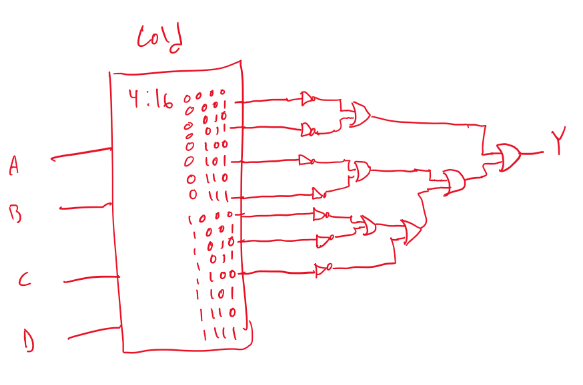 Cold
4:16 0000
0001
0010
0011
0100
0101
0110
0111
1000
1001
1010
1011
1100
1101
1110
1111
A
B
C
D
Y